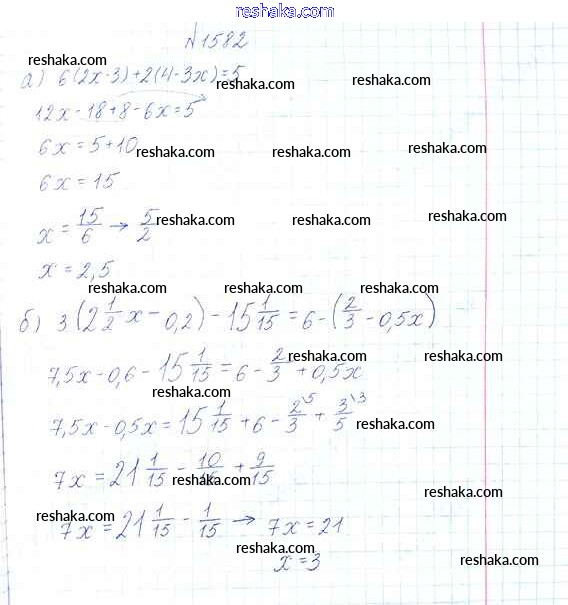 reshaka.com
№1582
reshaka.com
а) 6(2x-3)+2(4-3x)=5
reshaka.com reshaka.com
12x-18+8-6x=5
6x=5+10
reshaka.com reshaka.com reshaka.com
6x=15
x=15/6→5/2
reshaka.com reshaka.com reshaka.com
x=2,5
reshaka.com reshaka.com reshaka.com
б) 3(2 1/2x-0,2)-15 1/15=6-(2/3-0,5x)
reshaka.com reshaka.com
7,5x-0,6-15 1/15=6-2/3+0,5x
reshaka.com
7,5x-0,5x=15 1/15+6-2\5/3+3\3/5
reshaka.com
7x=21 1/15-10/15+9/15
reshaka.com reshaka.com
reshaka.com
7x=21 1/15-1/15→7x=21
x=3
reshaka.com